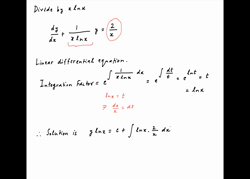 Divide by x lnx
dy/dx + 1/(x lnx) y = 2/x
Linear differential equation.
Integration Factor = e^∫ 1/(x lnx) dx = e^∫ dt/t = e^lnt = t
= lnx
lnx = t
⇒ dx/x = dt
∴ Solution is y lnx = c + ∫ lnx. 2/x dx